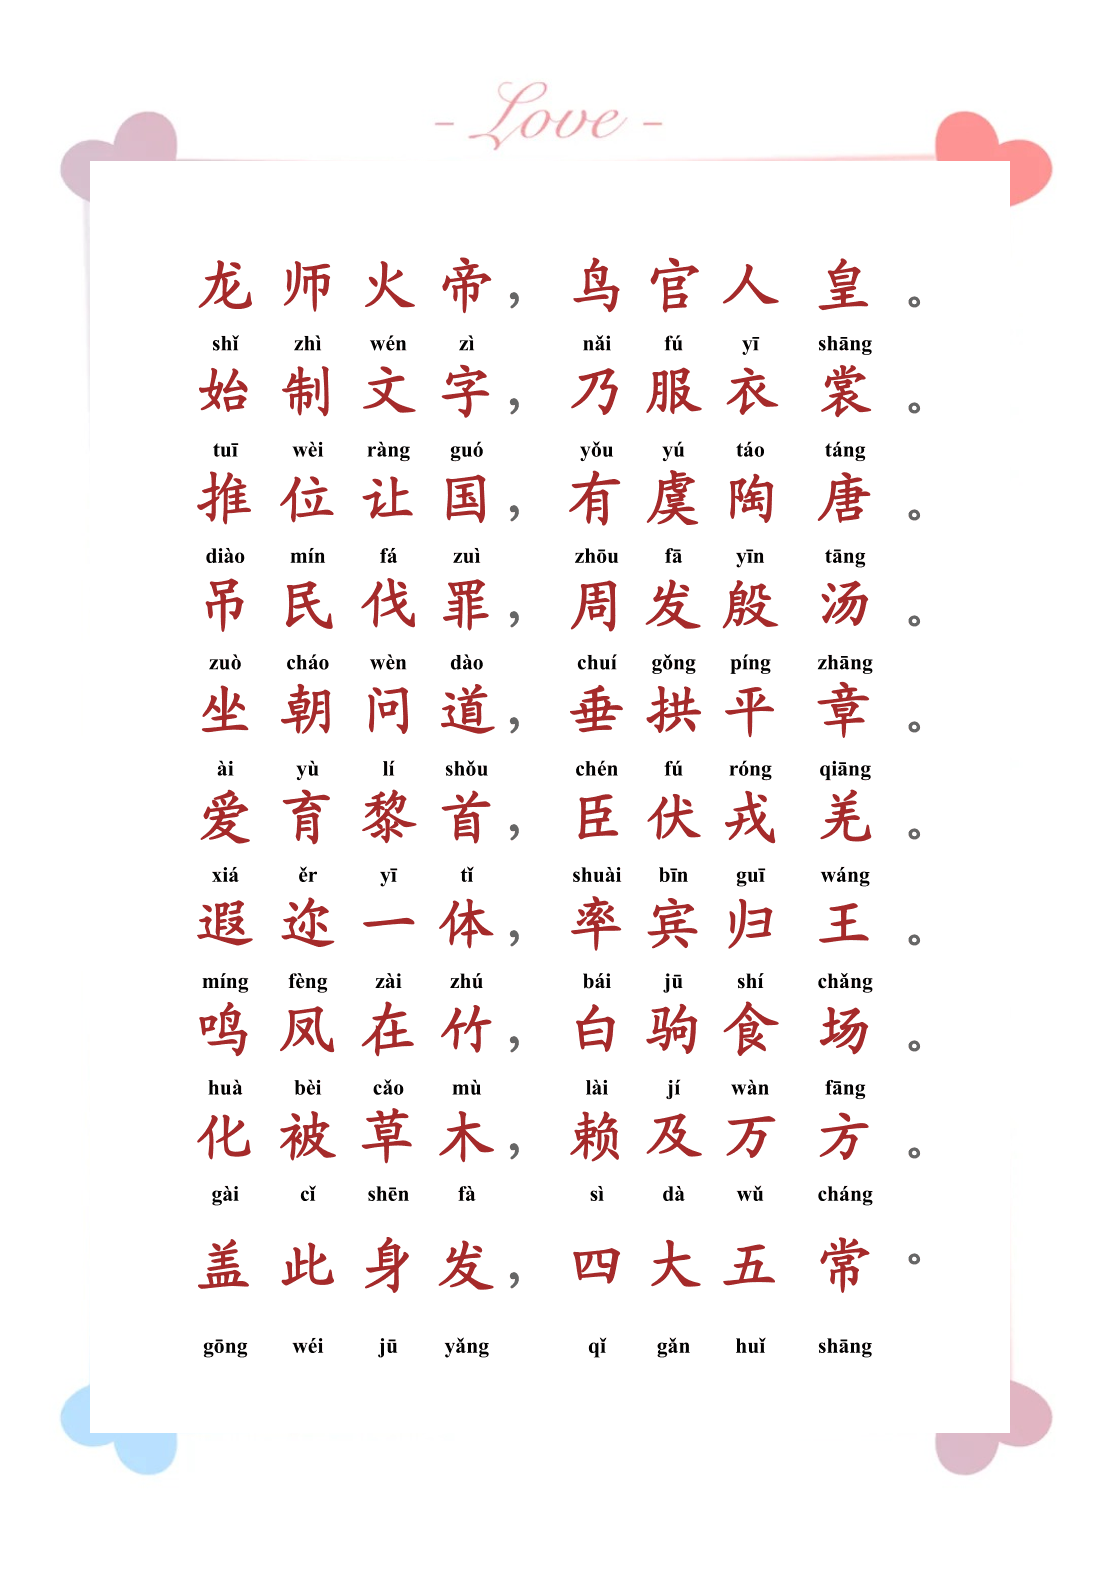 - Love -
龙 师 火 帝， 鸟 官 人 皇 。
shǐ zhì wén zì nǎi fú yī shāng
始 制 文 字， 乃 服 衣 裳 。
tuī wèi ràng guó yǒu yú táo táng
推 位 让 国， 有 虞 陶 唐 。
diào mín fá zuì zhōu fā yīn tāng
吊 民 伐 罪， 周 发 殷 汤 。
zuò cháo wèn dào chuí gǒng píng zhāng
坐 朝 问 道， 垂 拱 平 章 。
ài yù lí shǒu chén fú róng qiāng
爱 育 黎 首， 臣 伏 戎 羌 。
xiá ěr yī tǐ shuài bīn guī wáng
遐 迩 一 体， 率 宾 归 王 。
míng fèng zài zhú bái jū shí chǎng
鸣 凤 在 竹， 白 驹 食 场 。
huà bèi cǎo mù lài jí wàn fāng
化 被 草 木， 赖 及 万 方 。
gài cǐ shēn fà sì dà wǔ cháng
盖 此 身 发， 四 大 五 常 。
gōng wéi jū yǎng qǐ gǎn huǐ shāng